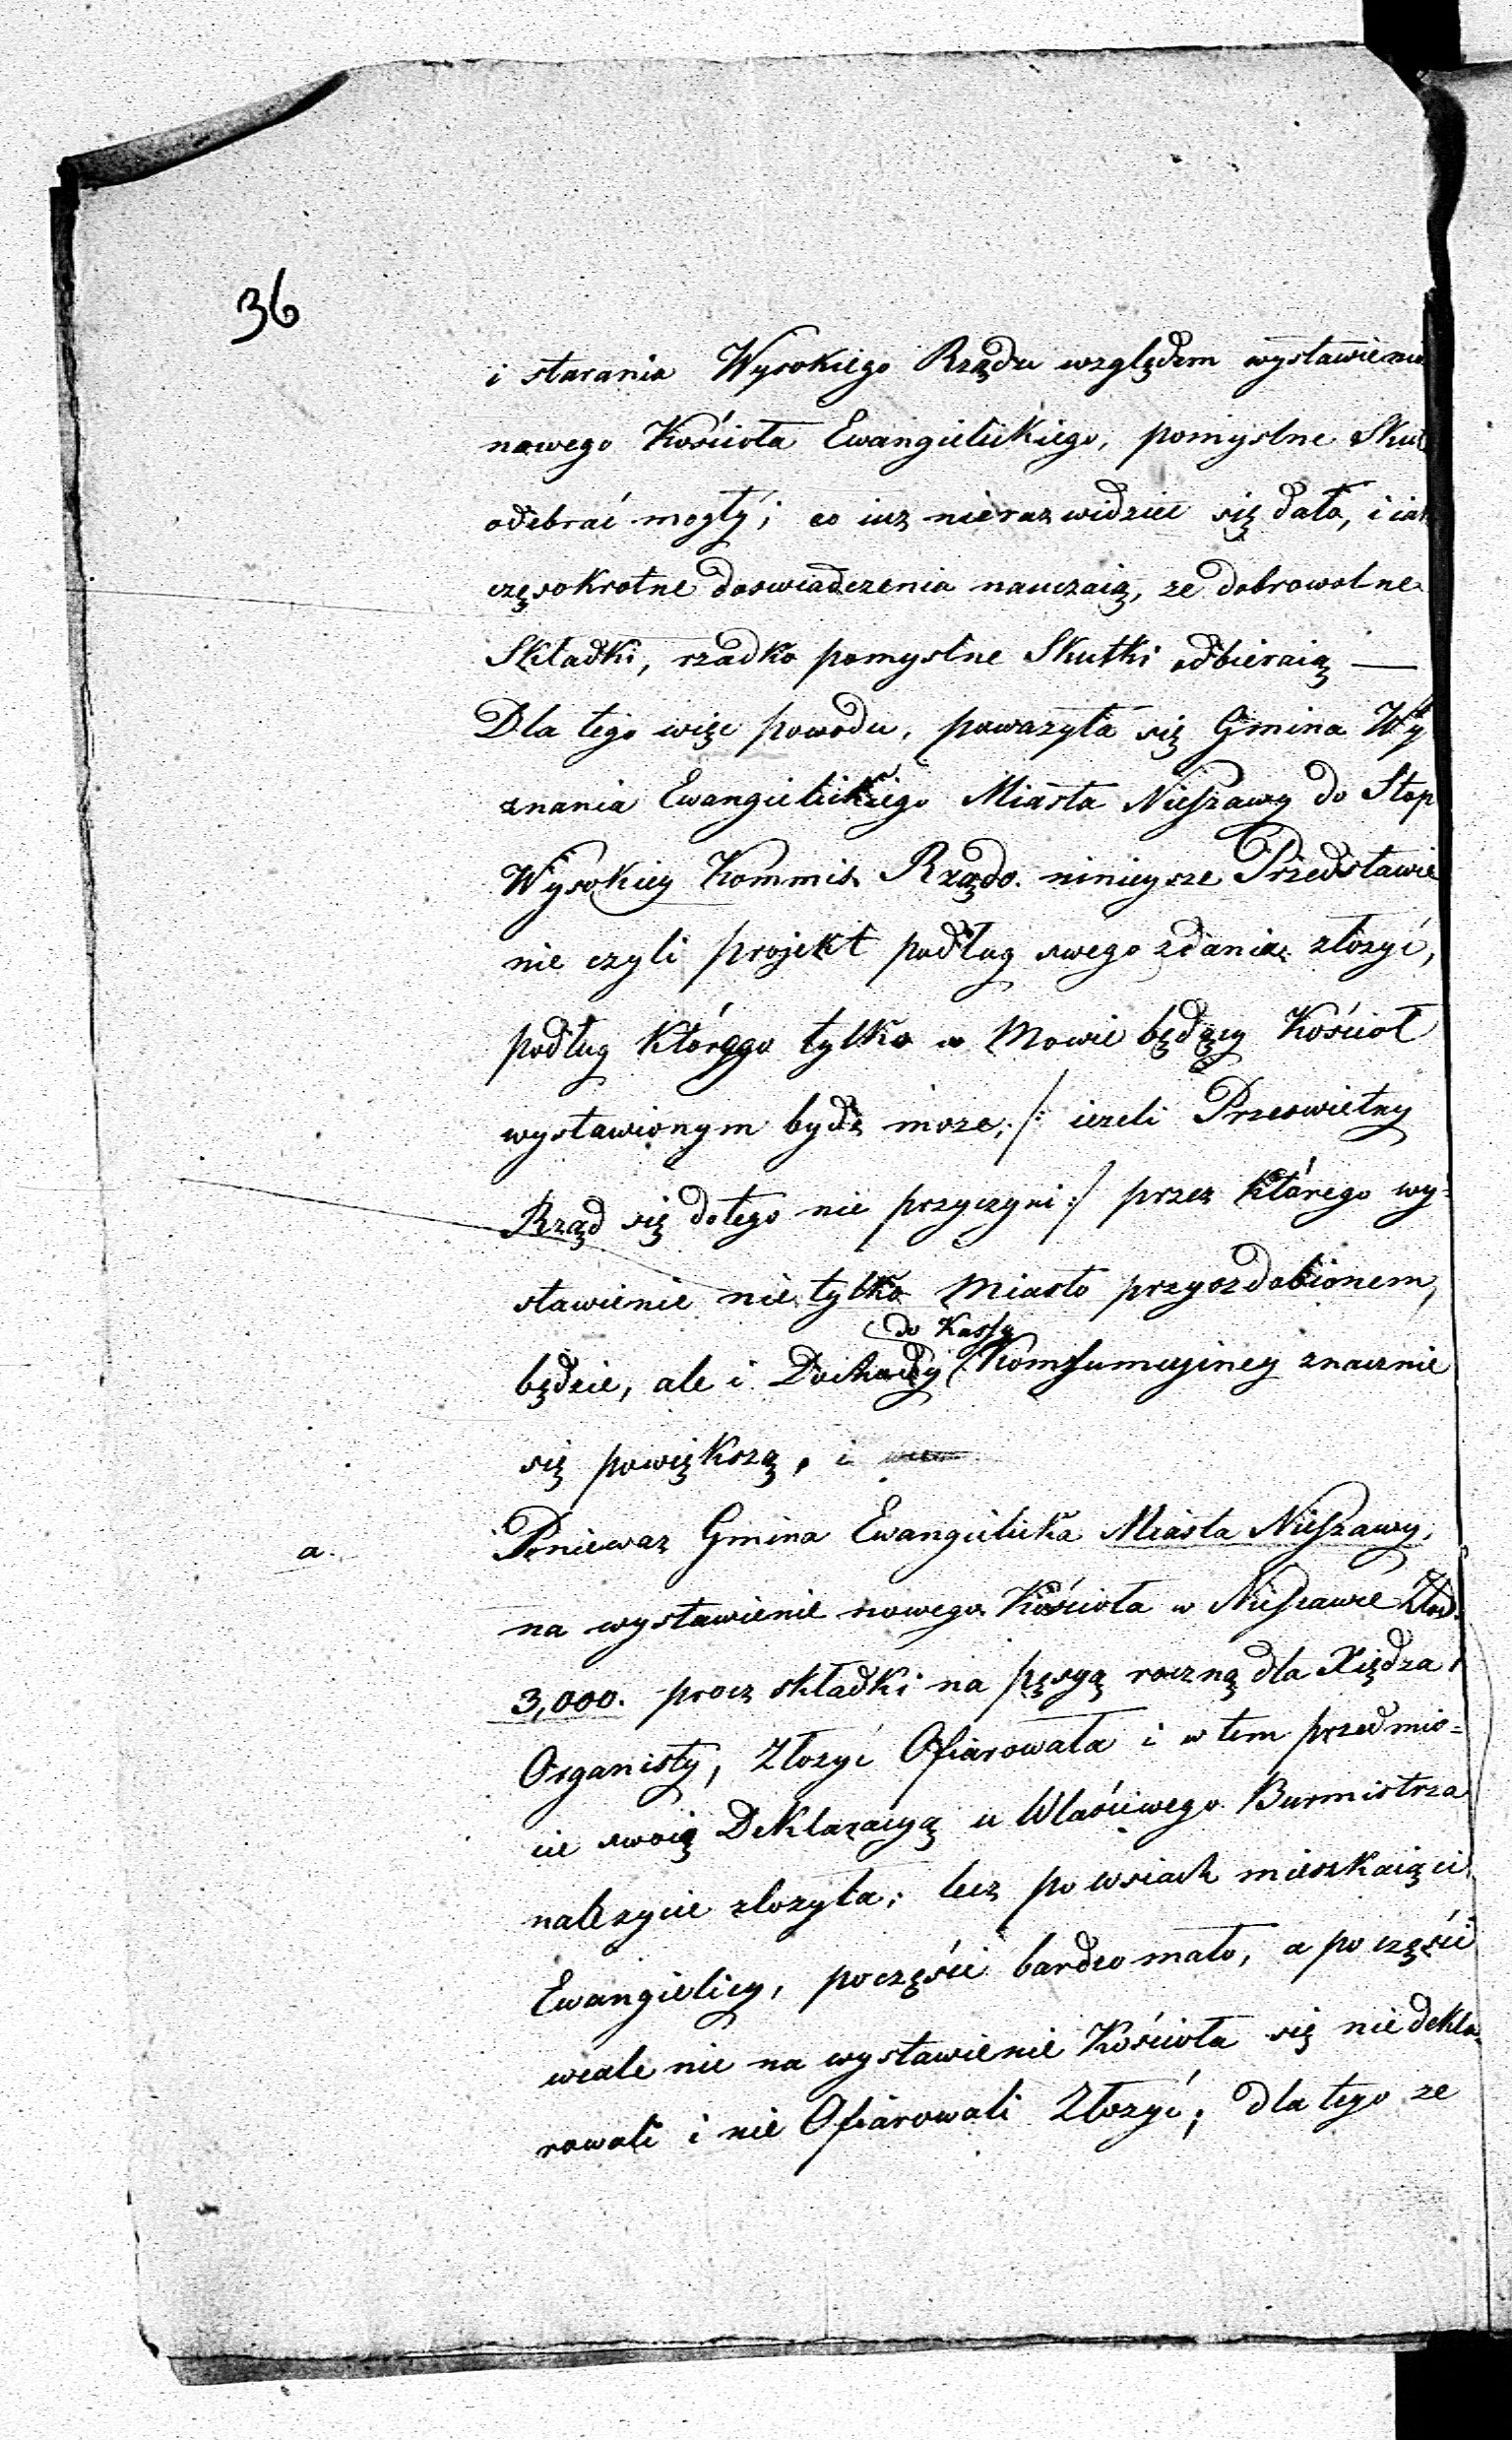 36
i starania Wysokiego Rządu względem wystawienia
nowego Kościoła Ewangielickiego, pomyslne Skut
odebrać mogły; co iuz nieraz widziec się dało, i iak
częsokrotne doswiadczenia nauczaią, ze dobrowolne
Składki, rzadko pomyslne Skutki odbieraią —
Dla tego więc powodu, powazyła się Gmina Wy
znania Ewangielickiego Miasta Nieszawy do Stop
Wysokiey Kommis. Rządo. ninieysze Przedstawie
nie czyli projekt podług swego zdania złozyć,
podług którego tylko w Mowie będący Kościoł
wystawionym bydz moze; /: iezeli Przeswietny
Rząd się dotego nie przyczyni :/ przez którego wy=
stawienie nie tylko Miasto przyozdobionem,
do Kassy
będzie, ale i Dochody Komsumcyiney znacznie
się powiększą, i
a. Poniewaz Gmina Ewangielicka Miasta Nieszawy,
na wystawienie nowego Kościoła w Nieszawie
3,000. procz składki na pęsyą roczną dla Xiędza i
Organisty, Złozyć Ofiarowała i w tem przedmio=
cie swoią Deklaracyą u Właściwego Burmistrza
nalezycie złozyła; lecz po wsiach mieszkaiąci
Ewangielicy, poczęści bardzo mało, a po części
wcale nic na wystawienie Kościoła się nie dekla
rowali i nie Ofiarowali Złozyć, dla tego ze